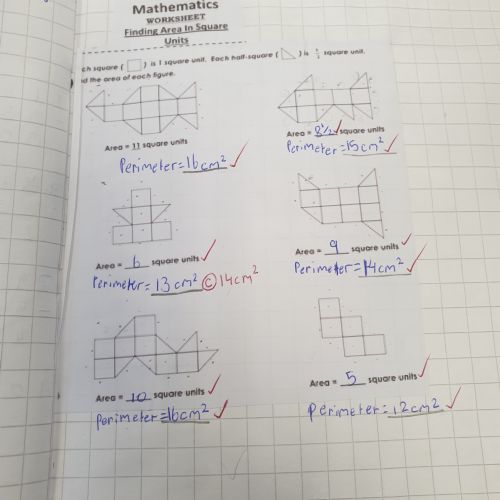 Mathematics
WORKSHEET
Finding Area In Square
Units
ch square ( ) is 1 square unit. Each half-square ( ) is 1/2 square unit.
d the area of each figure.
Area = 11 square units
Perimeter=16cm²
Area = 8½ square units
Perimeter=15cm²
Area = 6 square units
Perimeter=13cm² © 14cm²
Area = 9 square units
Perimeter=14cm²
Area = 10 square units
Perimeter=16cm²
Area = 5 square units
Perimeter=12cm²